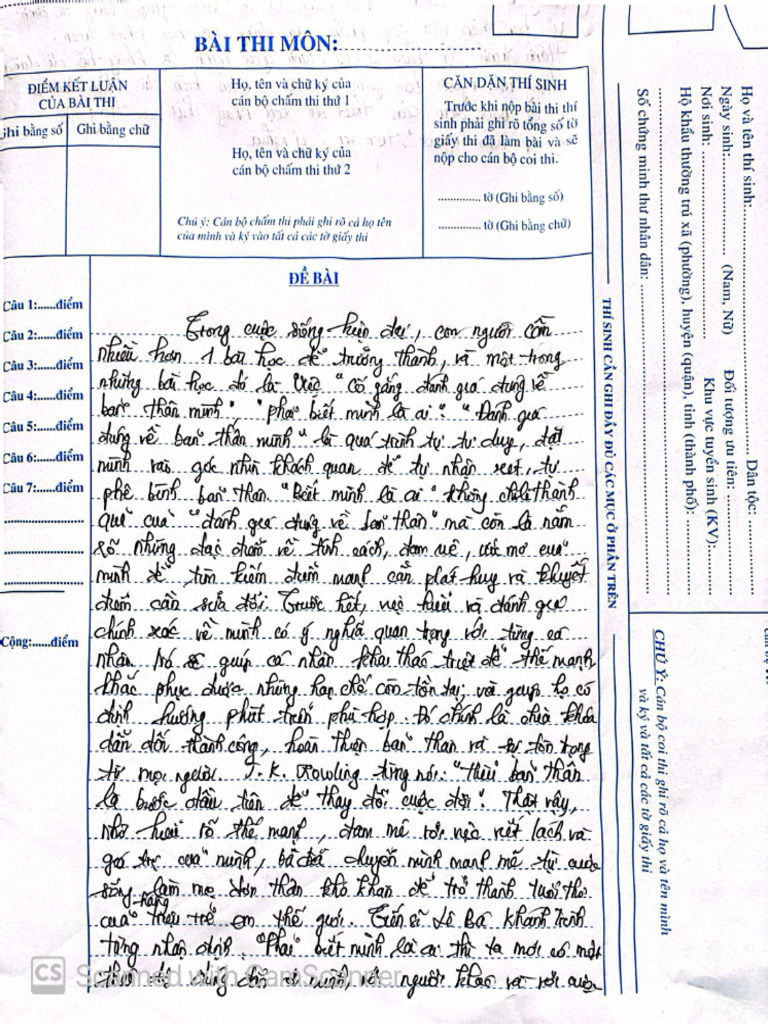 BÀI THI MÔN:
ĐIỂM KẾT LUẬN
CỦA BÀI THI
Ghi bằng số
Ghi bằng chữ
Họ, tên và chữ ký của
cán bộ chấm thi thứ 1
Họ, tên và chữ ký của
cán bộ chấm thi thứ 2
Chú ý: Cán bộ chấm thi phải ghi rõ cả họ tên
của mình và ký vào tất cả các tờ giấy thi
CĂN DẶN THÍ SINH
Trước khi nộp bài thi thí
sinh phải ghi rõ tổng số tờ
giấy thi đã làm bài và sẽ
nộp cho cán bộ coi thi.
.............. tờ (Ghi bằng số)
.............. tờ (Ghi bằng chữ)
ĐỀ BÀI
Câu 1:......điểm
Câu 2:......điểm
Câu 3:......điểm
Câu 4:......điểm
Câu 5:......điểm
Câu 6:......điểm
Câu 7:......điểm
Cộng:......điểm
Trong cuộc sống hiện đại, con người cần
nhiều hơn 1 bài học để trưởng thành, và một trong
những bài học đó là việc "Cố gắng đánh giá đúng về
bản thân mình", "phải biết mình là ai". "Đánh giá
đúng về bản thân mình" là quá trình tự tư duy, đặt
mình vào góc nhìn khách quan để tự nhận xét, tự
phê bình bản thân. "Biết mình là ai" không chỉ là thành
quả của "đánh giá đúng về bản thân" mà còn là nắm
rõ những đặc điểm về tính cách, đam mê, ước mơ của
mình để tìm kiếm điểm mạnh cần phát huy và khuyết
điểm cần sửa đổi. Trước hết, việc hiểu và đánh giá
chính xác về mình có ý nghĩa quan trọng với từng cá
nhân. Nó sẽ giúp cá nhân khai thác triệt để thế mạnh
khắc phục được những hạn chế còn tồn tại và giúp họ có
định hướng phát triển phù hợp. Đó chính là chìa khóa
dẫn đến thành công, hoàn thiện bản thân và sự tôn trọng
từ mọi người. J. K. Rowling từng nói: "Hiểu bản thân
là bước đầu tiên để thay đổi cuộc đời". Thật vậy,
nhờ hiểu rõ thế mạnh, đam mê với việc viết lách và
giá trị của mình, bà đã chuyển mình mạnh mẽ từ cuộc
sống làm mẹ đơn thân khó khăn để trở thành tuổi thơ
của triệu trẻ em thế giới. Tiến sĩ Lê Bá Khánh Trình
từng nhận định: "Phải biết mình là ai thì ta mới có một
thái độ đúng đắn với mình, với người khác và với cuộc
CS Scanned with CamScanner
THÍ SINH CẦN GHI ĐẦY ĐỦ CÁC MỤC Ở PHẦN TRÊN
Họ và tên thí sinh:
Dân tộc:
Ngày sinh:
(Nam, Nữ)
Đối tượng ưu tiên:
Nơi sinh:
Khu vực tuyển sinh (KV):
Hộ khẩu thường trú xã (phường), huyện (quận), tỉnh (thành phố):
Số chứng minh thư nhân dân:
CHÚ Ý: Cán bộ coi thi ghi rõ cả họ và tên mình
và ký và tất cả các tờ giấy thi